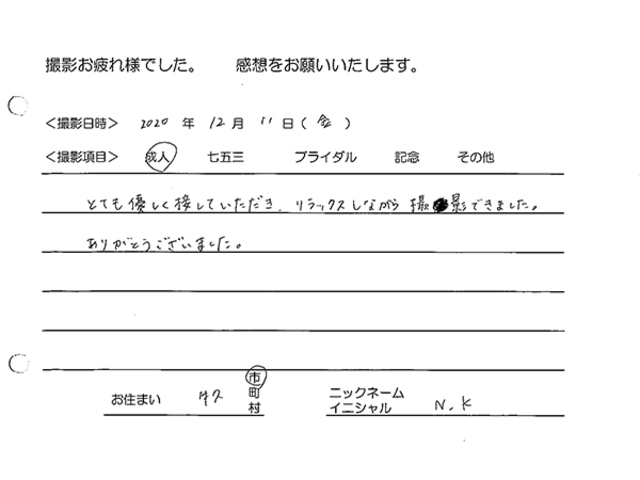 撮影お疲れ様でした。 感想をお願いいたします。
＜撮影日時＞ 2020 年 12 月 11 日 ( 金 )
＜撮影項目＞ 成人 七五三 ブライダル 記念 その他
とても優しく接していただき、リラックスしながら 撮影できました。
ありがとうございました。
お住まい 市 町 村
ニックネーム イニシャル N.K